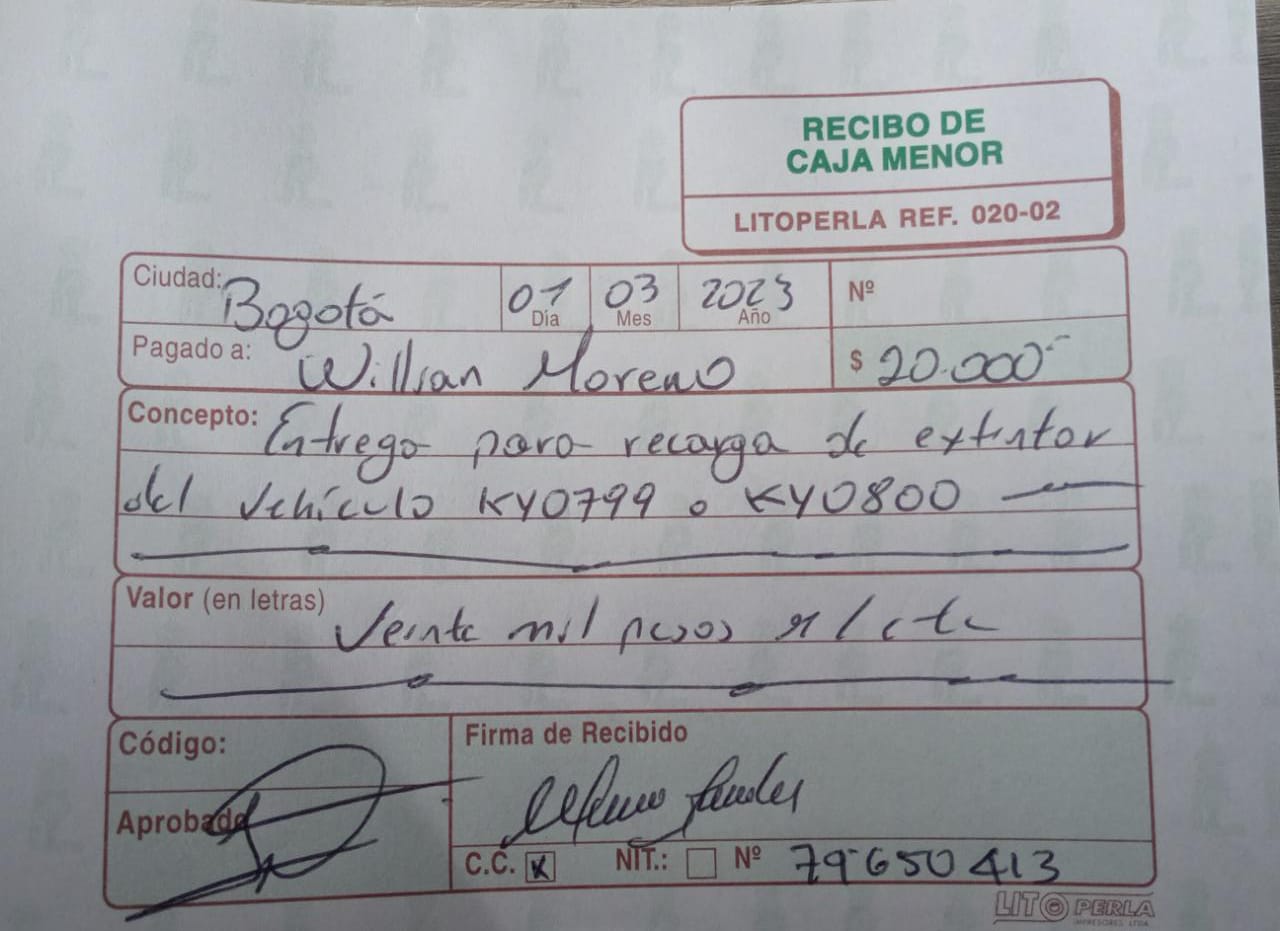 RECIBO DE
CAJA MENOR
LITOPERLA REF. 020-02
Ciudad: Bogotá 01 Día 03 Mes 2023 Año Nº
Pagado a: Willian Moreno $ 20.000
Concepto: Entrego para recarga de extintor
del vehículo KYO799 o KYO800
Valor (en letras) Veinte mil pesos m/cte
Código: Firma de Recibido
Aprobado
C.C. x NIT.: Nº 79650413
LITOPERLA
IMPRESORES LTDA.